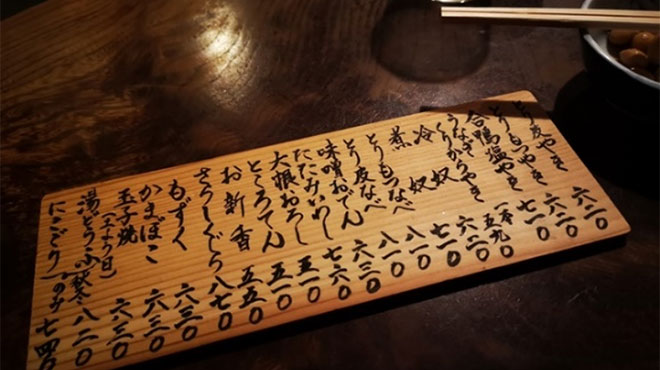 とり皮やき 六一〇
とりもつやき 六一〇
合鴨塩やき 七一〇
うなぎくりからやき 一本
冷奴 六二〇
煮奴 七一〇
とりもつなべ 八一〇
とり皮なべ 八一〇
味噌おでん 六三〇
たたみいわし 七六〇
大根おろし 五一〇
ところてん 五一〇
お新香 五五〇
さらしくじら 八七〇
もずく 六三〇
かまぼこ 六三〇
玉子焼(土よう日) 六三〇
湯どうふ(秋冬) 八二〇
にこごり のみ 七四〇